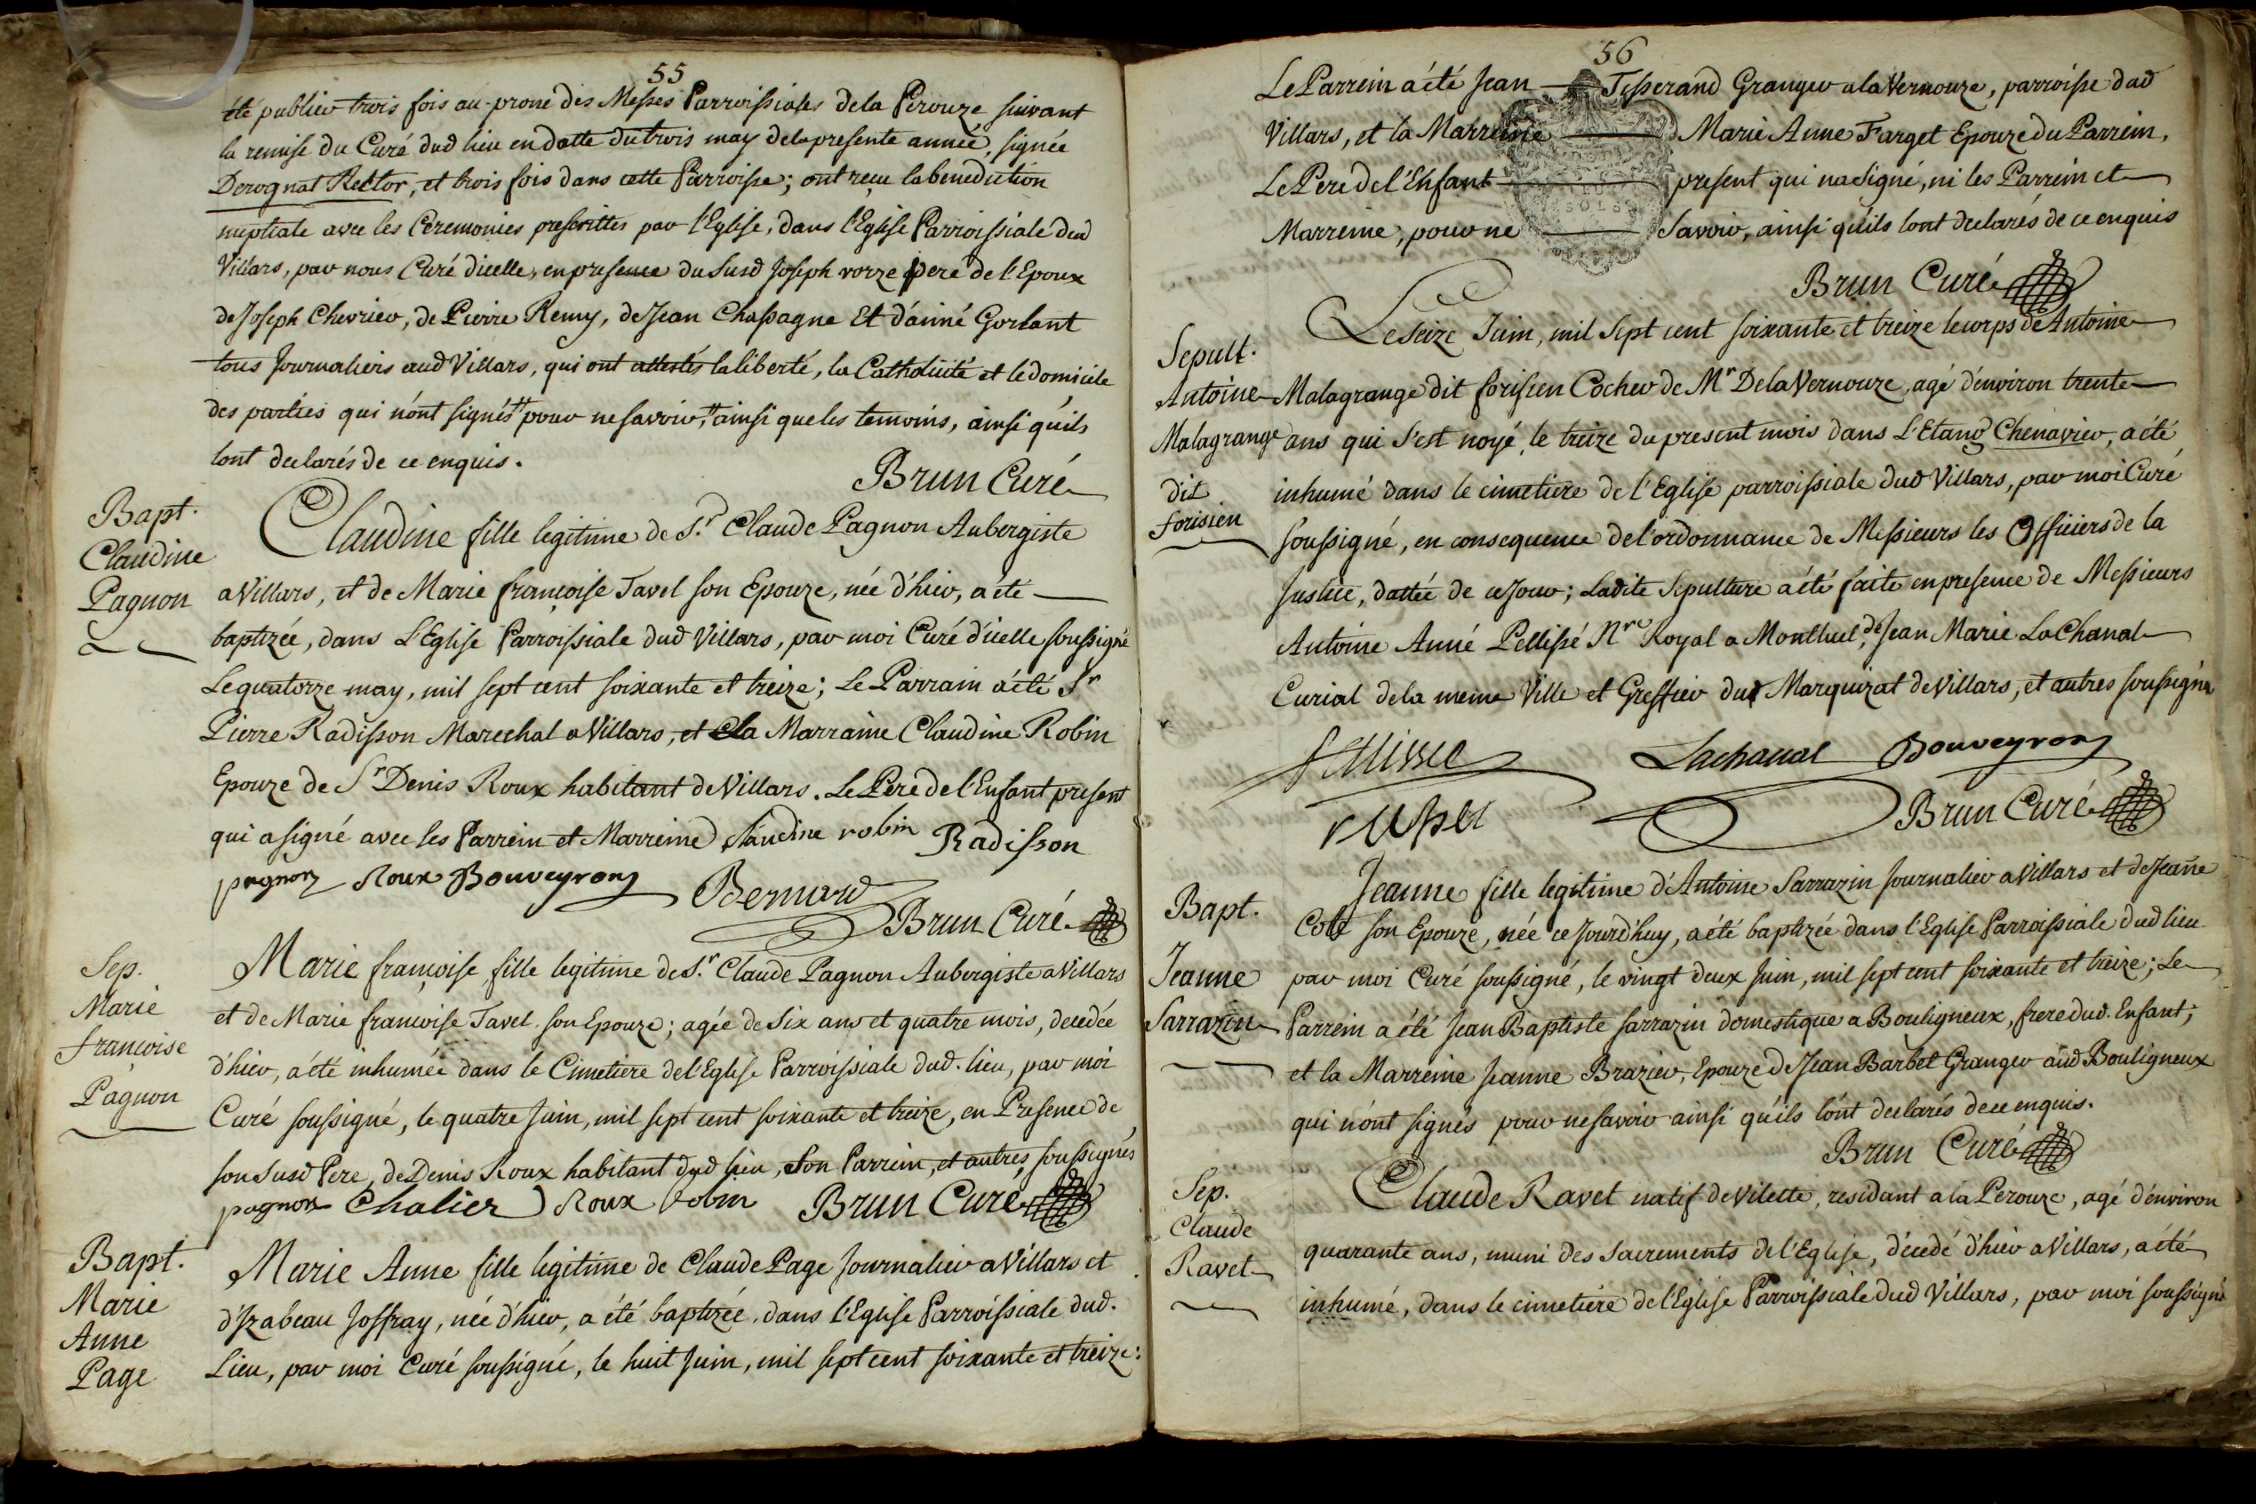 55
été publiev trois fois au prone des Messes Parroissiales de la Perouze suivant
la remise du Curé dud lieu en datte du trois may de la presente année, signée
Derognat Rector, et trois fois dans cette Parroisse; ont reçu la benediction
nuptiale avec les Ceremonies prescrittes par l'Eglise, dans l'Eglise Parroissiale dud
Villars, par nous Curé d'icelle, en presence du Susd Joseph vorze pere de l'Epoux
de Joseph Chevrier, de Pierre Remy, de Jean Chassagne Et d'aimé Gorlant
tous Journaliers aud Villars, qui ont attestés la liberté, la Catholicité et le domicile
des parties qui n'ont signés pour ne savoir, ainsi que les temoins, ainsi qu'ils
l'ont declarés de ce enquis.
Brun Curé
Bapt.
Claudine
Pagnon
Claudine fille legitime de Sr. Claude Pagnon Aubergiste
a Villars, et de Marie françoise Tavel son Epouze, née d'hier, a été
baptizée, dans L'Eglise Parroissiale dud Villars, par moi Curé d'icelle soussigné
Le quatorze may, mil sept cent soixante et treize; Le Parrain a été Sr
Pierre Radisson Marechal a Villars, et la Marraine Claudine Robin
Epouze de Sr Denis Roux habitant de Villars. Le Pere de l'Enfant present
qui a signé avec les Parrein et Marreine Claudine robin Radisson
pagnon Roux Bouveyron Bernard
Brun Curé
Sep.
Marie
françoise
Pagnon
Marie françoise fille legitime de Sr. Claude Pagnon Aubergiste a Villars
et de Marie francoise Tavel son Epouze; agée de Six ans et quatre mois, decedée
d'hier, a été inhumée dans le Cimetiere de l'Eglise Parroissiale dud. lieu, par moi
Curé soussigné, le quatre Juin, mil sept cent soixante et treize, en Presence de
son susd Pere, de Denis Roux habitant dud lieu, Son Parrein, et autres soussignés
pagnon Chalier Roux robin Brun Curé
Bapt.
Marie
Anne
Page
Marie Anne fille legitime de Claude Page Journalier a Villars et
d'Izabeau Joffray, née d'hier, a été baptizée, dans l'Eglise Parroissiale dud.
Lieu, par moi Curé soussigné, le huit Juin, mil sept cent soixante et treize:
56
Le Parrein a été Jean Tisserand Granger a la Vernouze, parroisse dud
Villars, et la Marreine Marie Anne Farget Epouze du Parrein,
Le Pere de l'Enfant present qui na signé, ni les Parrein et
Marreine, pour ne Savoir, ainsi qu'ils l'ont declarés de ce enquis
Brun Curé
Sepult.
Antoine
Malagrange
dit
forisien
Le seize Juin, mil sept cent soixante et treize le corps de Antoine
Malagrange dit forisien Cocher de Mr De la Vernouze, agé d'environ trente
ans qui s'est noyé, le treize du present mois dans L'Etang Chenavier, a été
inhumé dans le cimetiere de l'Eglise parroissiale dud Villars, par moi Curé
soussigné, en consequence de l'ordonnance de Messieurs les Officiers de la
Justice, dattée de ce Jour; Ladite Sepulture a été faite en presence de Messieurs
Antoine Aimé Pellissé Nre Royal a Montluel, de Jean Marie LaChanal
Curial de la meme Ville et Greffier dud Marquizat de Villars, et autres soussignés
Pellissé Lachanal Bouveyron
Brun Curé
Bapt.
Jeanne
Sarrazin
Jeanne fille legitime d'Antoine Sarrazin Journalier a Villars et de Jeanne
Cote son Epouze, née ce Jourd'huy, a été baptizée dans l'Eglise Parroissiale dud lieu
par moi Curé soussigné, le vingt deux Juin, mil sept cent soixante et treize; Le
Parrein a été Jean Baptiste sarrazin domestique a Bouligneux, frere dud. Enfant;
et la Marreine Jeanne Brazier, Epouze de Jean Barbet Granger aud Bouligneux
qui n'ont signés pour ne savoir ainsi qu'ils l'ont declarés de ce enquis.
Brun Curé
Sep.
Claude
Ravet
Claude Ravet natif de Vilette, residant a la Perouze, agé d'environ
quarante ans, muni des Sacrements de l'Eglise, décedé d'hier a Villars, a été
inhumé, dans le cimetiere de l'Eglise Parroissiale dud Villars, par moi soussigné